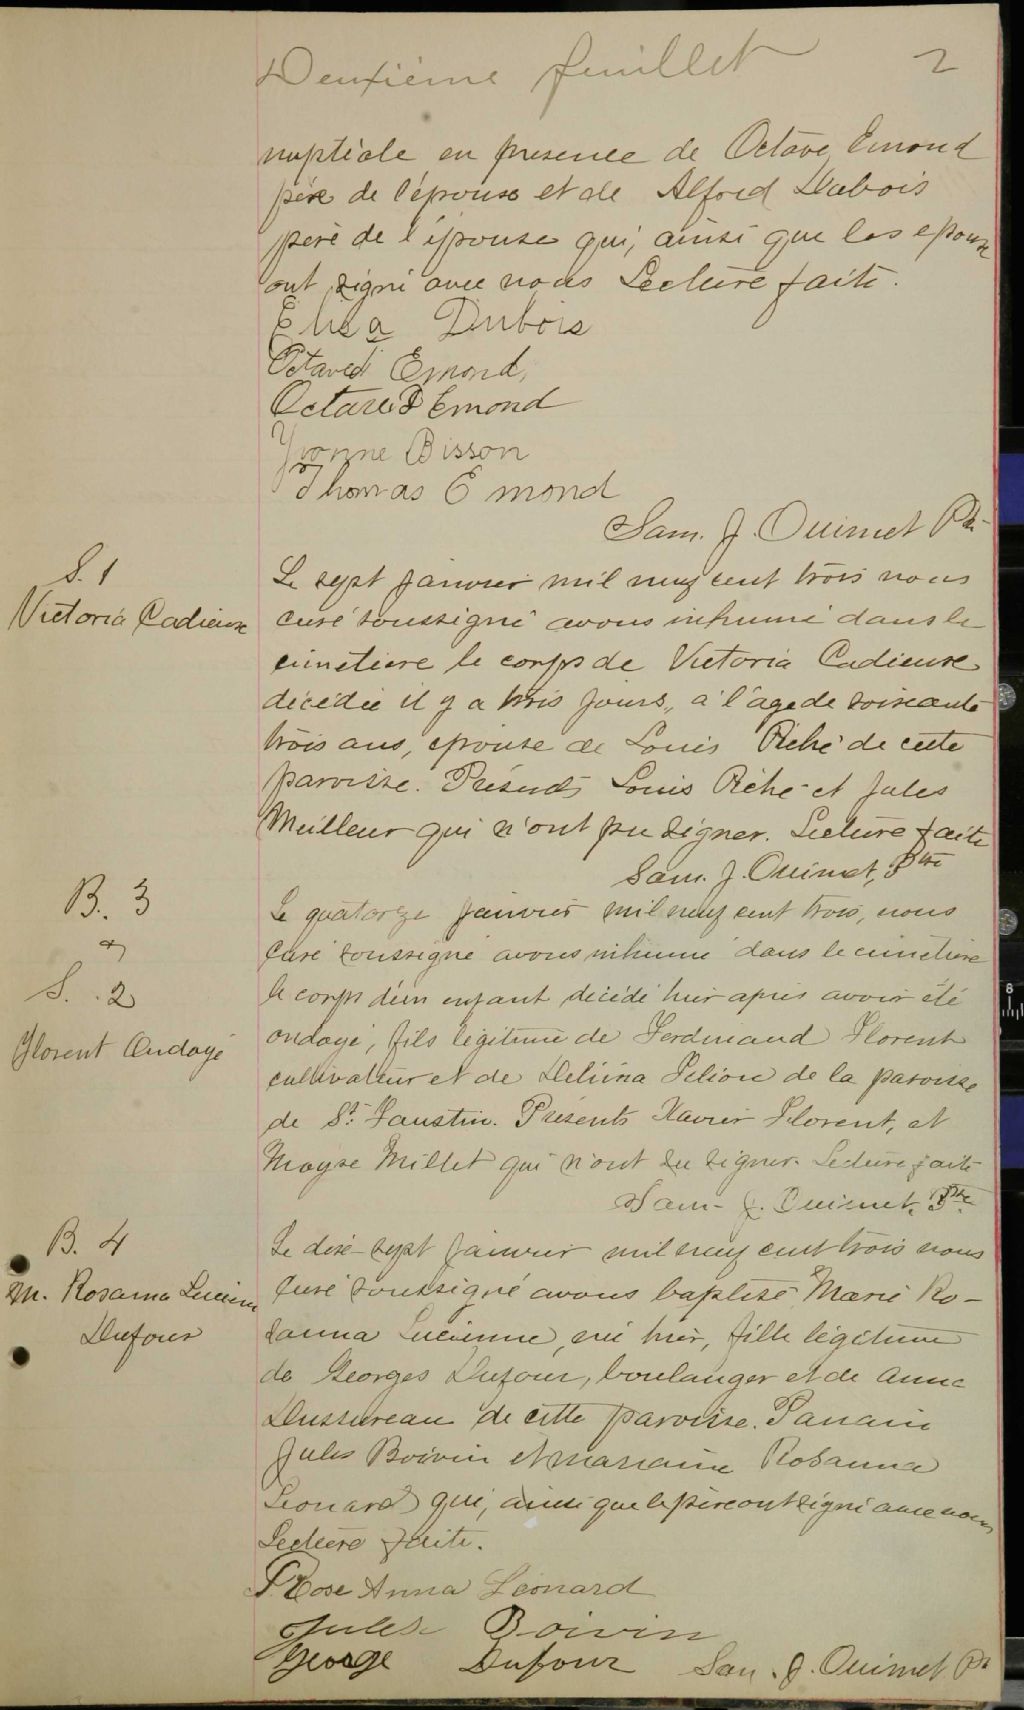 Deuxième feuillet 2
nuptiale en presence de Octave Emond
père de l'épouse et de Alfred Dubois
père de l'épouse qui, ainsi que les epoux
ont signé avec nous Lecture faite.
Elisa Dubois
Octave Emond,
Octave Emond
Yvonne Bisson
Thomas Emond
Sam. J. Ouimet Ptr
S. 1
Victoria Cadieux
Le sept janvier mil neuf cent trois nous
curé soussigné avons inhumé dans le
cimetiere le corps de Victoria Cadieux
décédée il y a trois jours, a l'age de soixante
trois ans, epouse de Louis Riché de cette
paroisse. Présents Louis Riché et Jules
Meilleur qui n'ont pu signer. Lecture faite
Sam. J. Ouimet, Ptre
B. 3
&
S. 2
Florent Ondoyé
Le quatorze janvier mil neuf cent trois, nous
curé soussigné avons inhumé dans le cimetiere
le corps d'un enfant décédé hier après avoir été
ondoyé, fils légitime de Ferdinand Florent
cultivateur et de Delima Filion de la paroisse
de St Faustin. Présents Xavier Florent, et
Moyse Millet qui n'ont su signer. Lecture faite
Sam. J. Ouimet, Ptre
B. 4
M. Rosanna Lucienne
Dufour
Le dix-sept janvier mil neuf cent trois nous
curé soussigné avons baptisé Marie Ro-
sanna Lucienne, née hier, fille légitime
de Georges Dufour, boulanger et de Anna
Dussureau de cette paroisse. Parrain
Jules Boivin et marraine Rosanna
Leonard qui, ainsi que le père ont signé avec nous
Lecture faite.
Rose Anna Léonard
Jules Boivin
George Dufour Sam. J. Ouimet Ptr